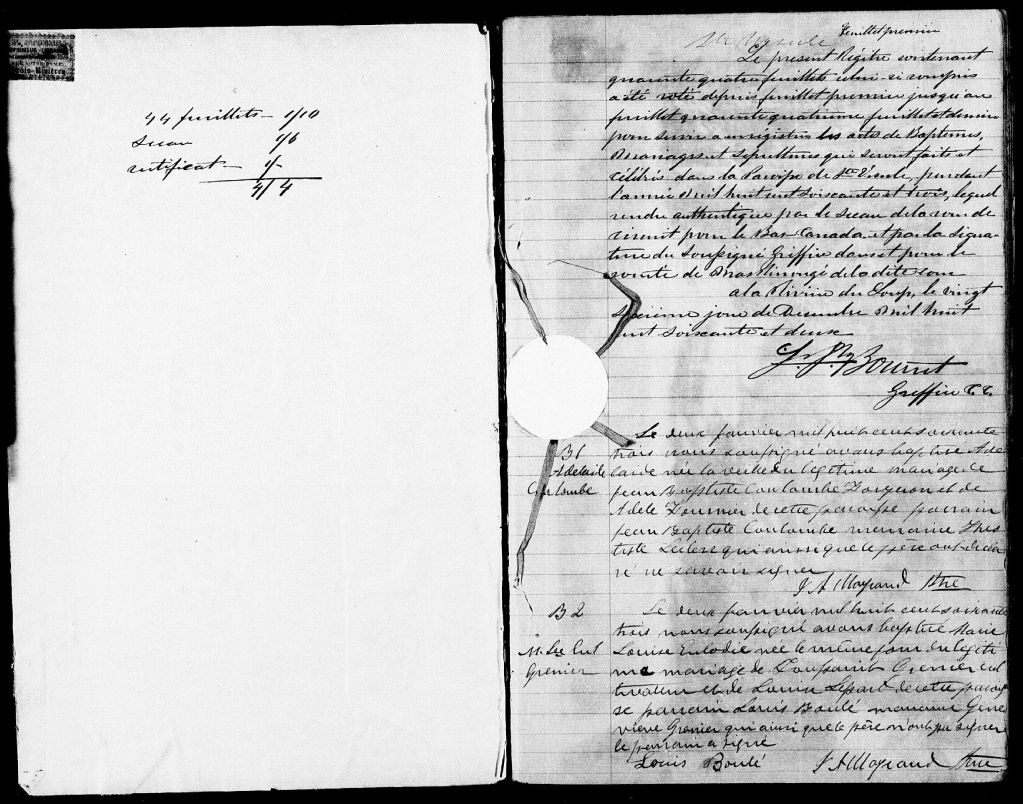 44 feuillets — 1/10
Sceau 1/6
certificat — 1/-
4/4
Feuillet premier
Ste Ursule
Le présent Régitre contenant
quarante quatre feuillets celui-ci compris
a été coté depuis feuillet premier jusqu'au
feuillet quarante quatrieme feuillet et dernier
pour servir a enrégistrer les actes de Baptemes,
Mariages et Sépultures qui seront faits et
célébrés dans la Paroisse de Ste Ursule, pendant
l'année Mil huit cent soixante et trois, lequel
rendu authentique par le sceau de la cour de
circuit pour le Bas-Canada et par la signa-
ture du Soussigné Greffier dans et pour le
comté de Maskinongé de la dite cour
a la Rivière du Loup, le vingt
jour de Décembre Mil huit
cent soixante et deux
Greffier C. C.
B 1
Adelaide
Coulombe
Le deux janvier mil huit cent soixante
trois nous soussigné avons baptisé Ade
laide née la veille du légitime mariage de
Jean Baptiste Coulombe Forgeron et de
Adele Fournier de cette paroisse parrain
Jean Baptiste Coulombe marraine
Leclerc qui aussi que le père ont décla
ré ne savoir signer
J A Mayrand Ptre
B 2
M. Lse Eul
Grenier
Le deux janvier mil huit cent soixante
trois nous soussigné avons baptisé Marie
Louise Eulodie née le même jour du légiti
me mariage de Toussaint Grenier cul
tivateur et de Louise Lepart de cette parois
se parrain Louis Boulé marraine Gene
viève Grenier qui ainsi que le père n'ont pu signer
le parrain a signé
Louis Boulé J A Mayrand Ptre